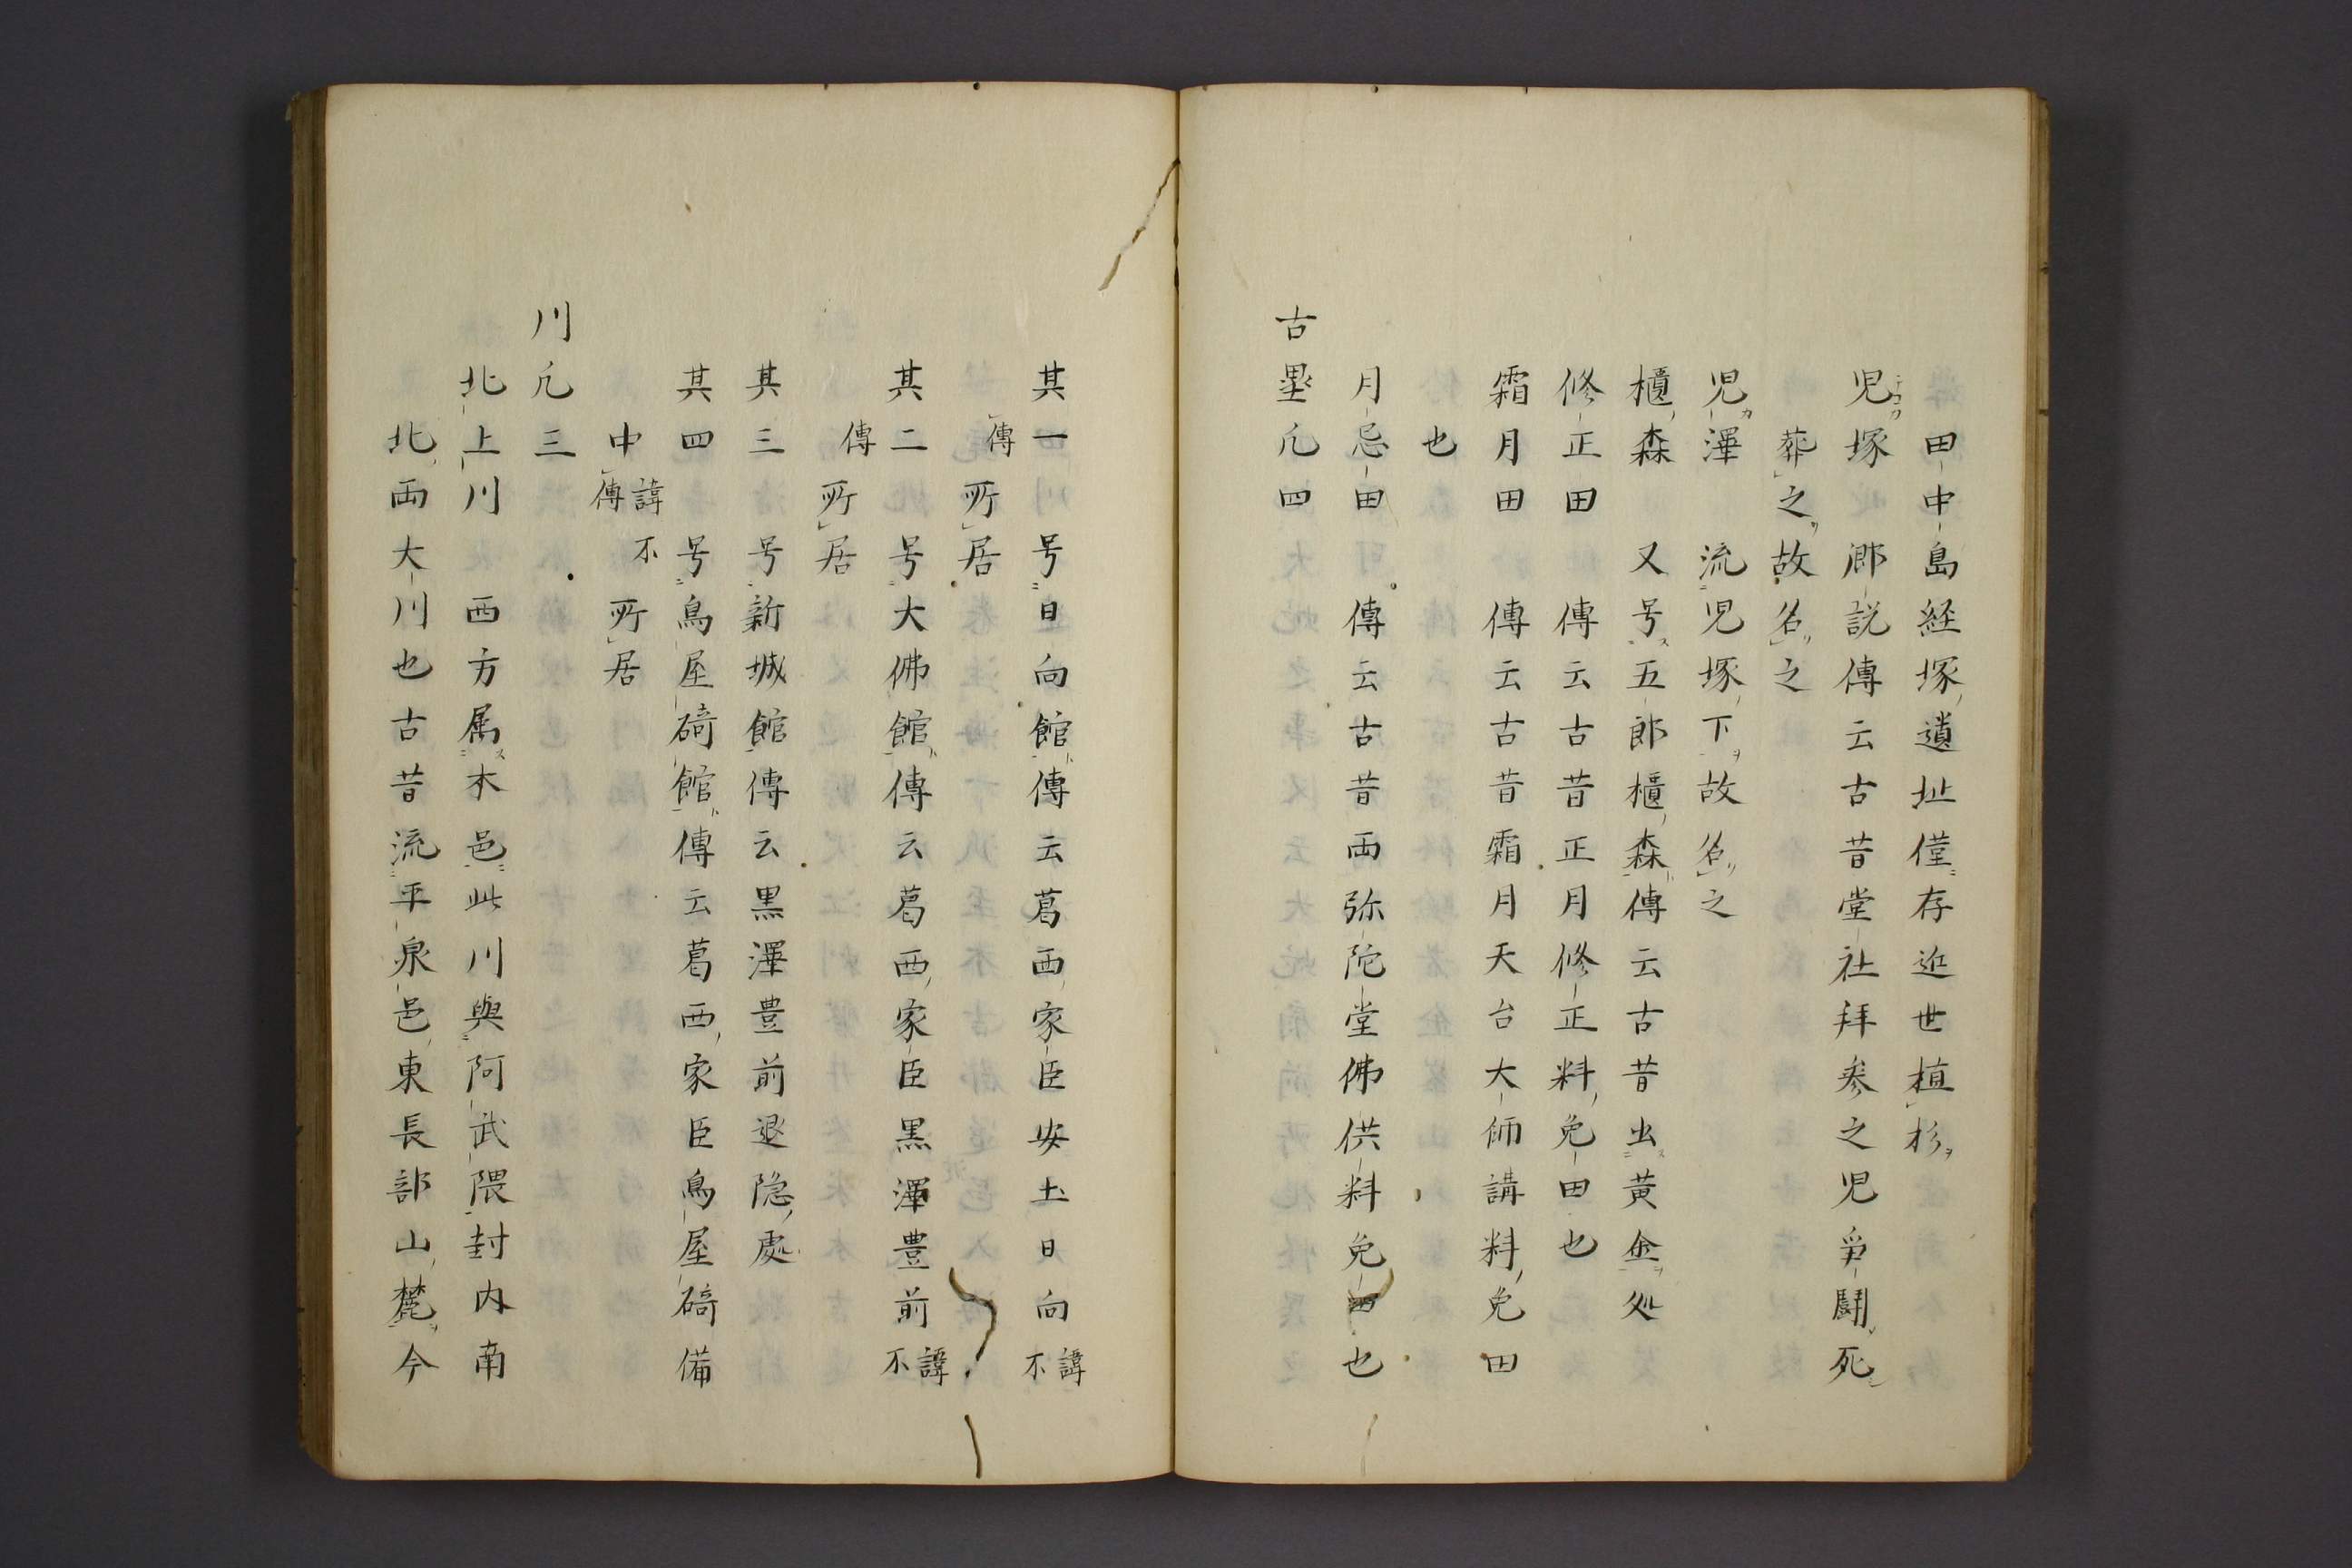 田中島経塚遺址僅存近世植杉
児塚 郷説傳云古昔堂社拜参之児爭鬪死
葬之故名之
児澤 流児塚下故名之
櫃森 又号五郎櫃森傳云古昔出黄金処
修正田 傳云古昔正月修正料免田也
霜月田 傳云古昔霜月天台大師講料免田
也
月忌田 傳云古昔両弥陀堂佛供料免田也
古壘凢四
其一 号日向館傳云葛西家臣安土日向諱不
傳所居
其二 号大佛館傳云葛西家臣黒澤豊前諱不
傳所居
其三 号新城館傳云黒澤豊前退隠處
其四 号鳥屋﨑館傳云葛西家臣鳥屋﨑備
中諱不傳所居
川凢三
北上川 西方属木邑此川與阿武隈封内南
北両大川也古昔流平泉邑東長部山麓今